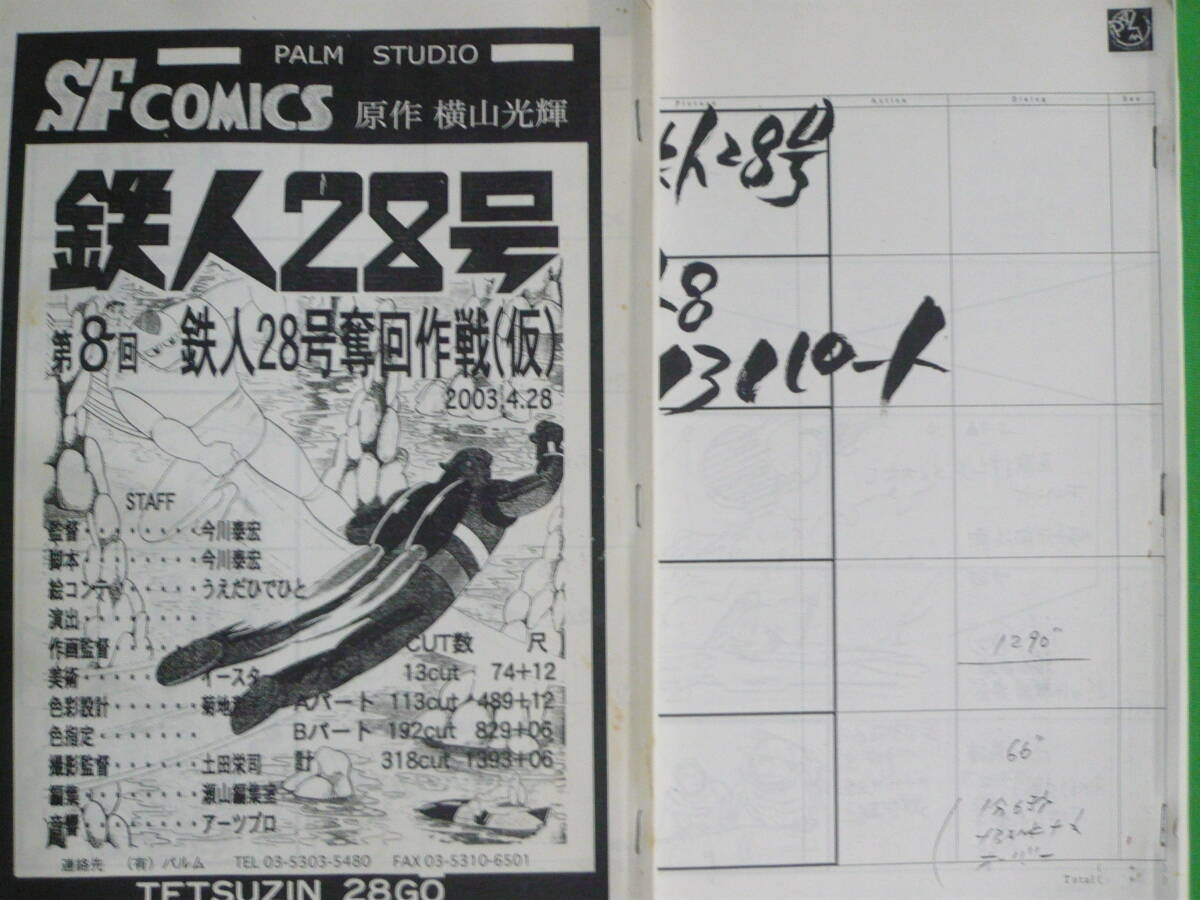 PALM STUDIO
SF COMICS 原作 横山光輝
鉄人28号
第8回 鉄人28号奪回作戦(仮)
2003.4.28
STAFF
監督・・・・・・・・・今川泰宏
脚本・・・・・・・・・今川泰宏
絵コンテ・・・・・・・うえだひでひと
演出・・・・・・・・・
作画監督・・・・・・・
CUT数 尺
美術・・・・・・・・・イースター
13cut 74+12
色彩設計・・・・・・・菊地
Aパート 113cut 489+12
色指定・・・・・・・・
Bパート 192cut 829+06
撮影監督・・・・・・・土田栄司
計 318cut 1393+06
編集・・・・・・・・・瀬山編集室
音響・・・・・・・・・アーツプロ
連絡先 (有)パルム TEL 03-5303-5480 FAX 03-5310-6501
TETSUZIN 28GO
Picture Action Dialog Sec
人28号
8
パート
1290"
66"
Total(